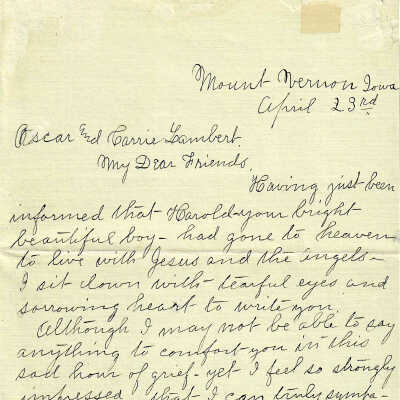 Mount Vernon Iowa
April 23rd
Oscar and Carrie Lambert.
My Dear Friends,
Having just been
informed that Harold-your bright
beautiful boy- had gone to heaven
to live with Jesus and the angels-
I sit down with tearful eyes and
sorrowing heart to write you.
Although I may not be able to say
anything to comfort you in this
sad hour of grief-yet I feel so strongly
impressed that I can truly sympa-